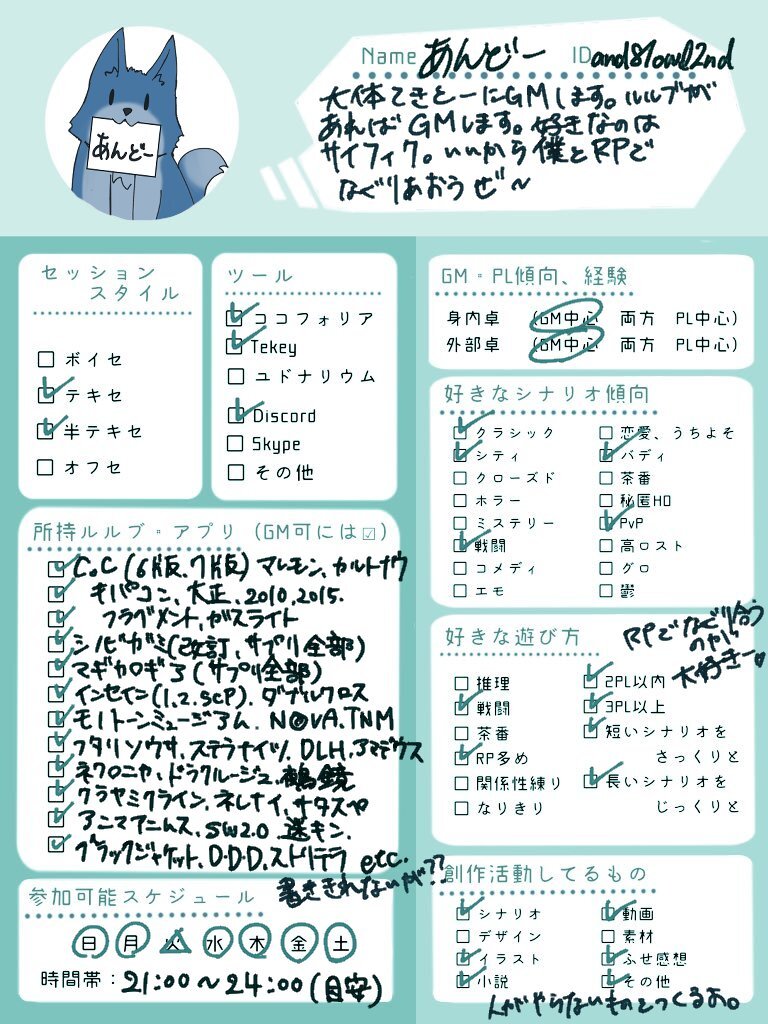 あんどー
Name あんどー ID and81owl2nd
大体てきとーにGMします。ルルブが
あればGMします。好きなのは
サイフィク。いいから僕とRPで
なぐりあおうぜ〜
セッション
スタイル
□ ボイセ
☑ テキセ
☑ 半テキセ
□ オフセ
ツール
☑ ココフォリア
☑ Tekey
□ ユドナリウム
☑ Discord
□ Skype
□ その他
GM・PL傾向、経験
身内卓 (GM中心 両方 PL中心)
外部卓 (GM中心 両方 PL中心)
好きなシナリオ傾向
☑ クラシック
☑ シティ
□ クローズド
□ ホラー
□ ミステリー
☑ 戦闘
□ コメディ
□ エモ
□ 恋愛、うちよそ
☑ バディ
□ 茶番
□ 秘匿HO
☑ PvP
□ 高ロスト
□ グロ
□ 鬱
所持ルルブ・アプリ (GM可には☑)
☑ CoC (6版、7版) マレモン、カルトナウ
☑ キパコン、大正、2010、2015.
☑ フラグメント、ガスライト
☑ シノビガミ(改訂、サプリ全部)
☑ マギカロギア(サプリ全部)
☑ インセイン(1.2.SCP)、ダブルクロス
☑ モノトーンミュージアム、N◎VA、TNM
☑ フタリソウサ、ステラナイツ、DLH、アマデウス
☑ ネクロニカ、ドラクルージュ、鵺鏡
☑ クラヤミクライン、ネレナイ、サタスペ
☑ アニマアニムス、SW2.0 迷キン、
☑ ブラックジャケット、D.D.D、ストリテラ etc.
書ききれないが??
好きな遊び方
RPでなぐり合う
のがら
大好きー♥
□ 推理
☑ 戦闘
□ 茶番
☑ RP多め
□ 関係性練り
□ なりきり
☑ 2PL以内
☑ 3PL以上
☑ 短いシナリオを
さっくりと
☑ 長いシナリオを
じっくりと
参加可能スケジュール
日 月 火 水 木 金 土
時間帯：21:00〜24:00(目安)
創作活動してるもの
☑ シナリオ
□ デザイン
☑ イラスト
☑ 小説
☑ 動画
□ 素材
☑ ふせ感想
☑ その他
人がやらないものをつくるよ。